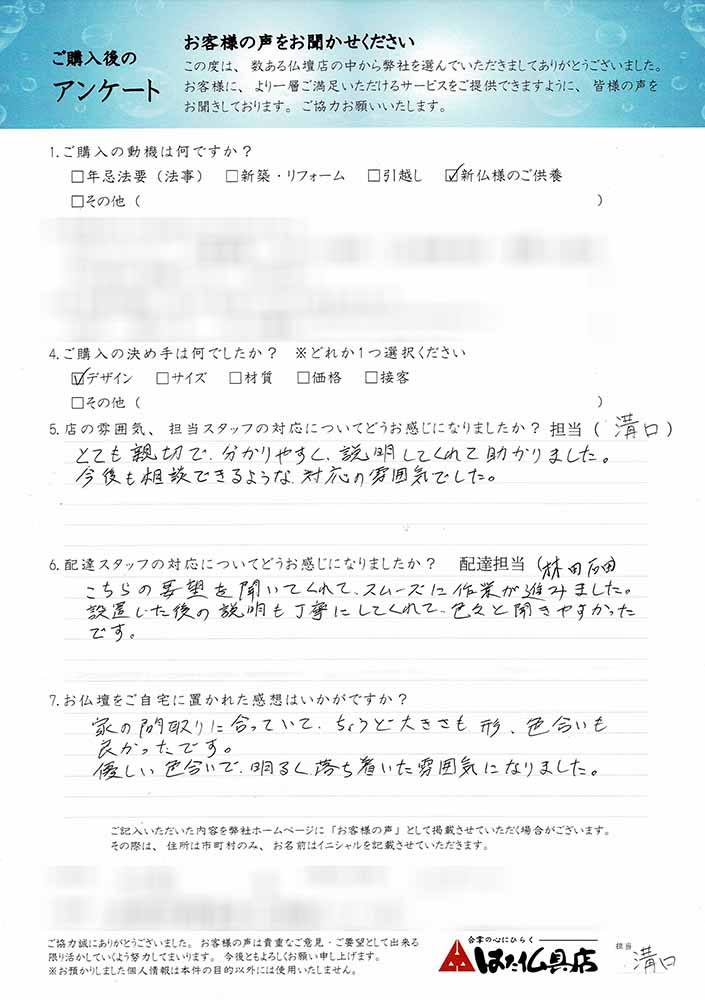 ご購入後の
アンケート
お客様の声をお聞かせください
この度は、数ある仏壇店の中から弊社を選んでいただきましてありがとうございました。
お客様に、より一層ご満足いただけるサービスをご提供できますように、皆様の声を
お聞きしております。ご協力お願いいたします。
1.ご購入の動機は何ですか？
□年忌法要（法事） □新築・リフォーム □引越し ☑新仏様のご供養
□その他（ ）
4.ご購入の決め手は何でしたか？ ※どれか1つ選択ください
☑デザイン □サイズ □材質 □価格 □接客
□その他（ ）
5.店の雰囲気、担当スタッフの対応についてどうお感じになりましたか？担当（ 溝口 ）
とても親切で、分かりやすく、説明してくれて助かりました。
今後も相談できるような対応の雰囲気でした。
6.配達スタッフの対応についてどうお感じになりましたか？ 配達担当（林田
こちらの要望を聞いてくれて、スムーズに作業が進みました。
設置した後の説明も丁寧にしてくれて、色々と聞きやすかった
です。
7.お仏壇をご自宅に置かれた感想はいかがですか？
家の間取りに合っていて、ちょうど大きさも形、色合いも
良かったです。
優しい色合いで、明るく落ち着いた雰囲気になりました。
ご記入いただいた内容を弊社ホームページに「お客様の声」として掲載させていただく場合がございます。
その際は、住所は市町村のみ、お名前はイニシャルを記載させていただきます。
ご協力誠にありがとうございました。お客様の声は貴重なご意見・ご要望として出来る
限り活かしていくよう努力してまいります。今後ともよろしくお願い申し上げます。
※お預かりしました個人情報は本件の目的以外には使用いたしません。
合掌の心にひらく
はた仏具店
担当
溝口